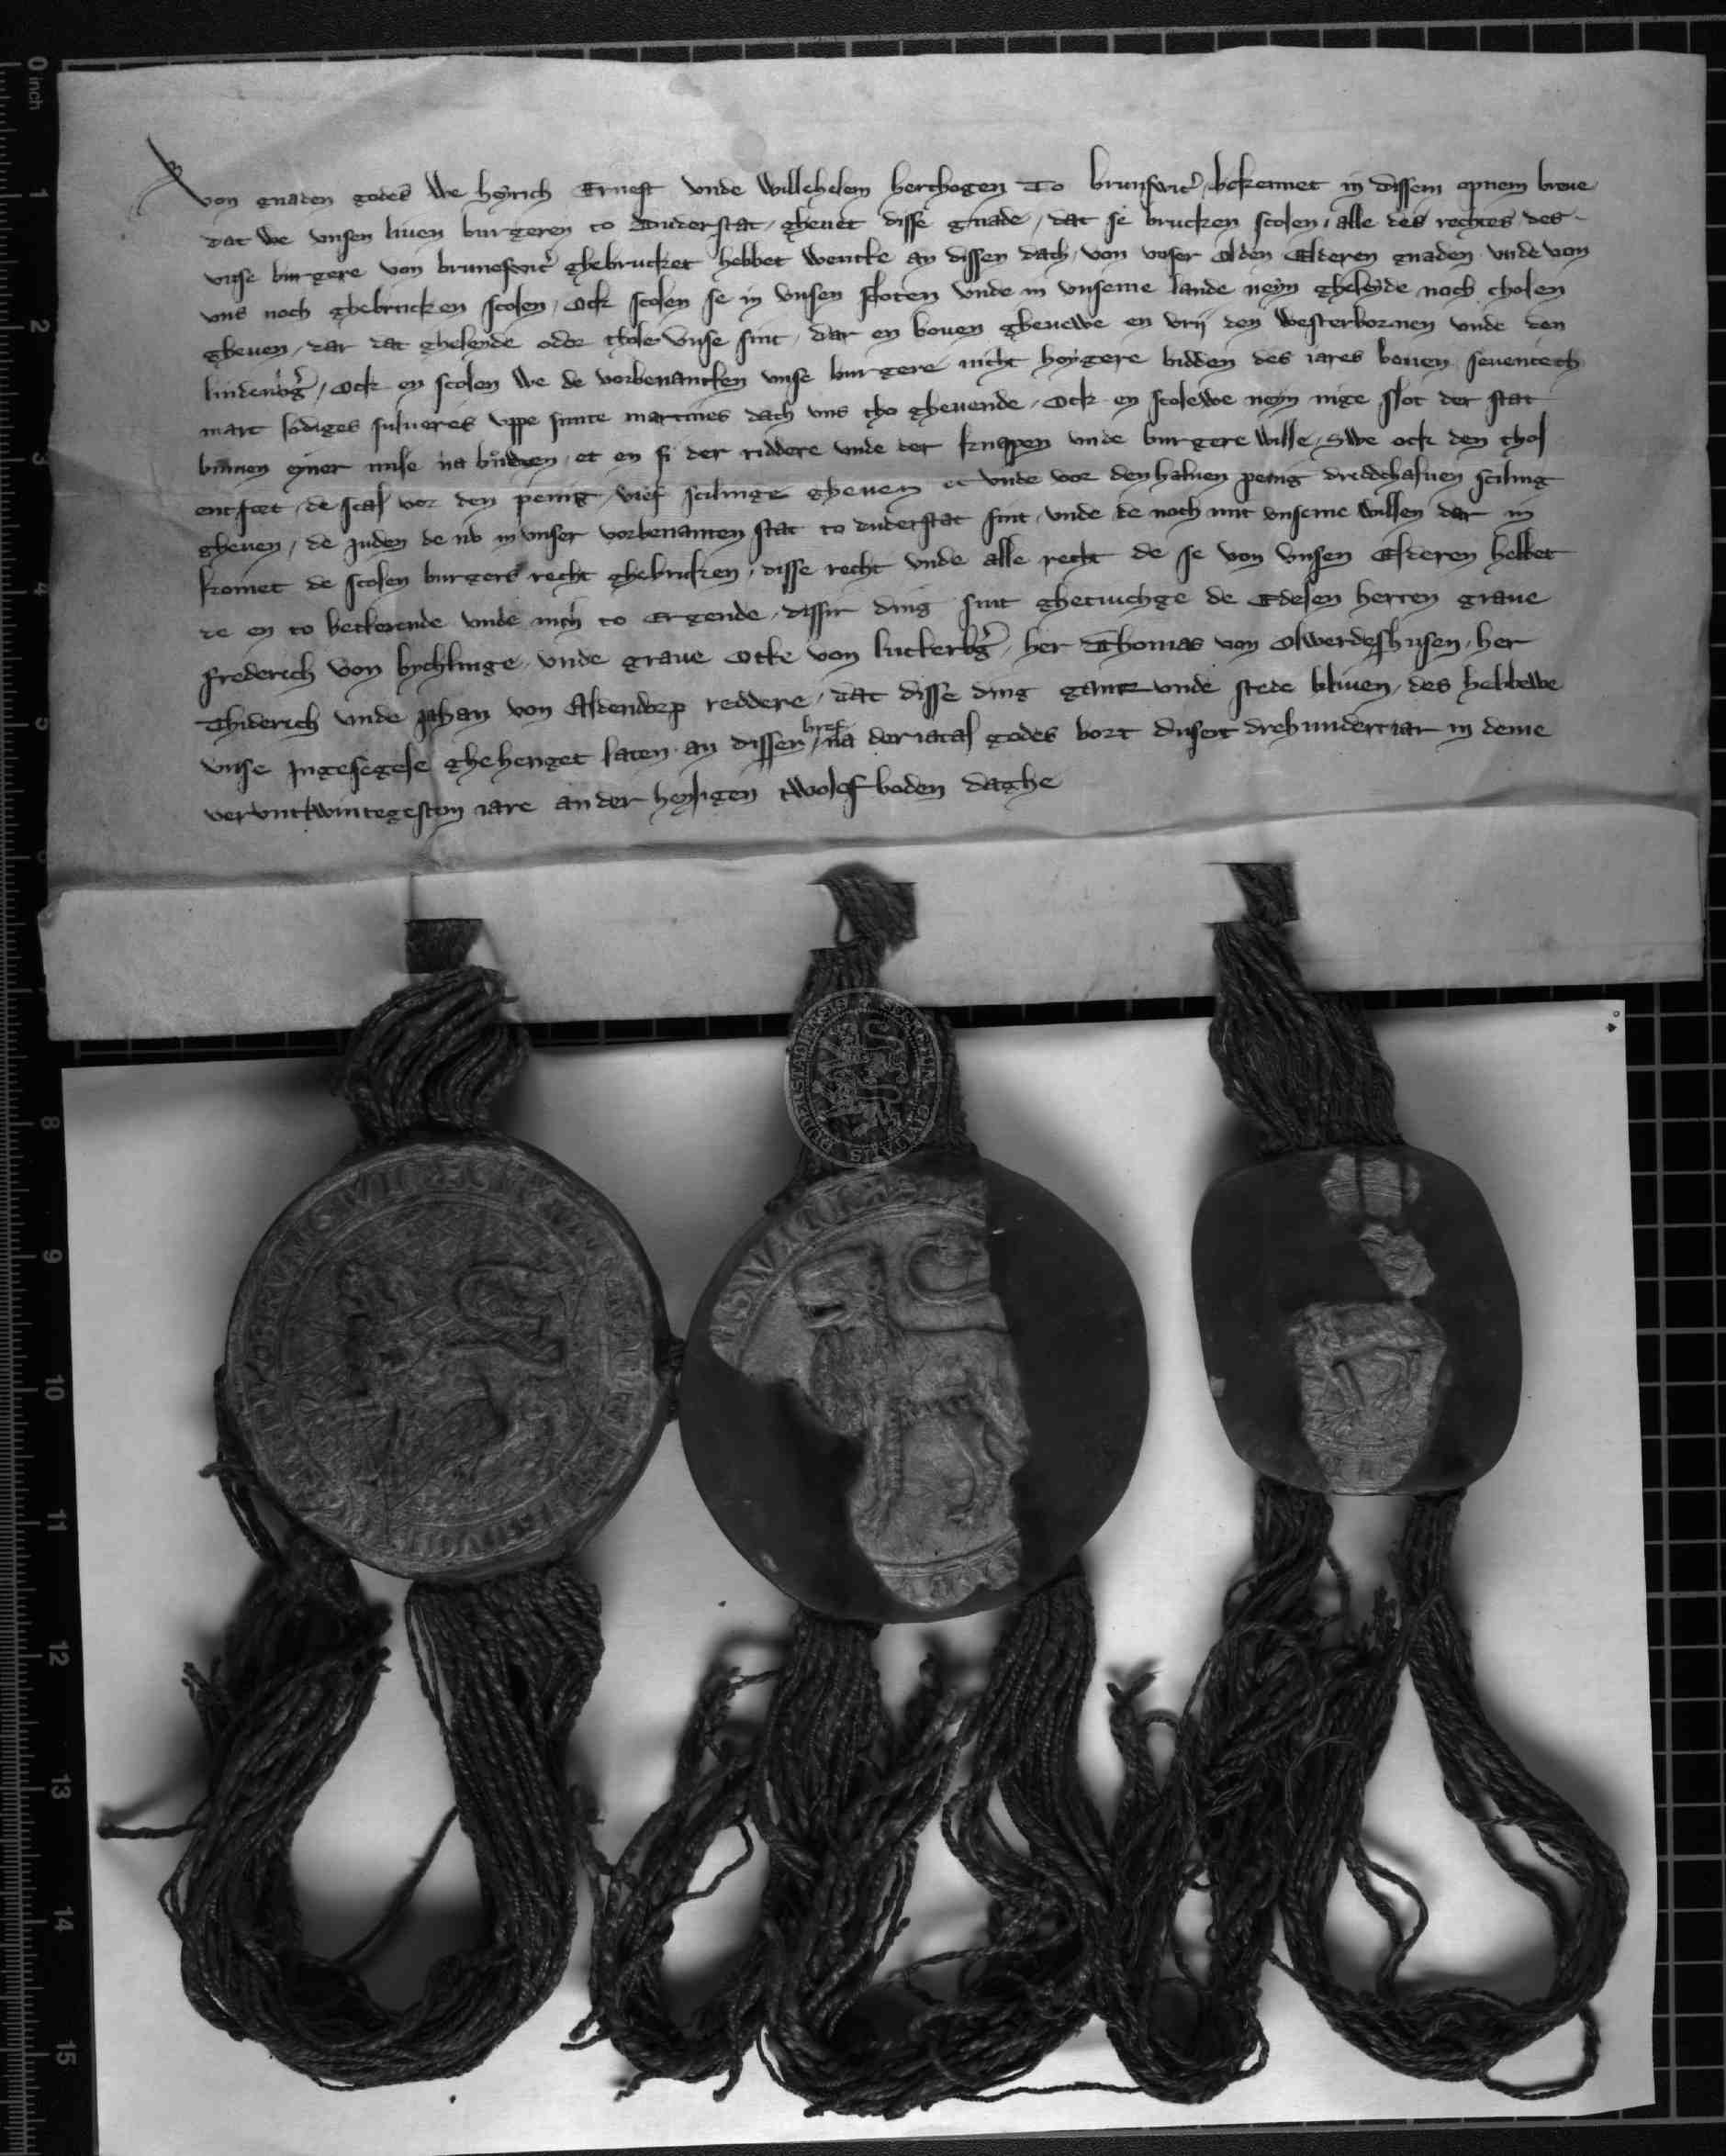 Von gnaden godes We heynrich Ernest vnde Willehelem herthogen To brunswic bekennet in dissem opnem breue
dat We vnsen liuen burgeren to Duderstat gheuet disse gnade, dat se brucken scolen, alle des rechtes des
vnse burgere von bruneswic ghebrucket hebbet wentke an dissen dach, von vnser olden Elderen gnaden vnde von
vns noch ghebrucken scolen, Ock scolen se in vnsen sloten vnde in vnseme lande neyn gheleyde noch tholen
gheuen, dar dat gheleyde oder thole vnse sint, dar en bouen gheuewe en vrij den westerbornen vnde den
lindenberg, Ock en scolen We de vorbenantken vnse burgere nicht hoygere bidden des iares bouen seuentech
marc lodiges sulueres vppe sunte martines dach vns tho gheuende, Ock en scolewe neyn nige slot der stat
binnen eyner mile na buwen, et en si der riddere vnde der knappen vnde burgere wille, Swe ock den thol
entforet, de scal vor den penig vief scilinge gheuen et vnde vor den haluen penig dreddehaluen sciling
gheuen, de juden de nv in vnser vorbenanten stat to duderstat sint vnde de noch mit vnseme willen dar in
komet de scolen burgers recht ghebrucken, disse recht vnde alle recht de se von vnsen Elderen hebbet
de en to betkerende vnde nich to Ergende, disser ding sint ghetuichge de Edelen herren graue
frederich von bychlinge, vnde graue Otke von lutkerberg, her Thomas von Olwerdeshusen, her
Thiderich vnde johan von Aldendorp reddere, dat disse ding gantz vnde stede bliuen, des hebbewe
vnse jngesegele ghehenget laten an dissen bref na der iatal godes bort dusent drehundert iar in deme
vervnttwintegesten iare an der heyligen twolef boden daghe
0 inch
1
2
3
4
5
8
9
10
11
12
13
14
15